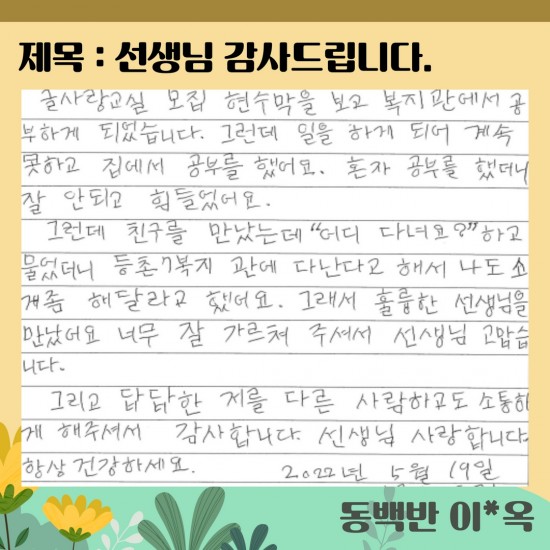 제목 : 선생님 감사드립니다.
글사랑교실 모집 현수막을 보고 복지관에서 공
부하게 되었습니다. 그런데 일을 하게 되어 계속
못하고 집에서 공부를 했어요. 혼자 공부를 했더니
잘 안되고 힘들었어요.
그런데 친구를 만났는데 "어디 다녀요?" 하고
물었더니 등촌7복지 관에 다닌다고 해서 나도 소
개좀 해달라고 했어요. 그래서 훌륭한 선생님을
만났어요 너무 잘 가르쳐 주셔서 선생님 고맙습
니다.
그리고 답답한 저를 다른 사람하고도 소통하
게 해주셔서 감사합니다. 선생님 사랑합니다
항상 건강하세요. 2022년 5월 19일
동백반 이*옥